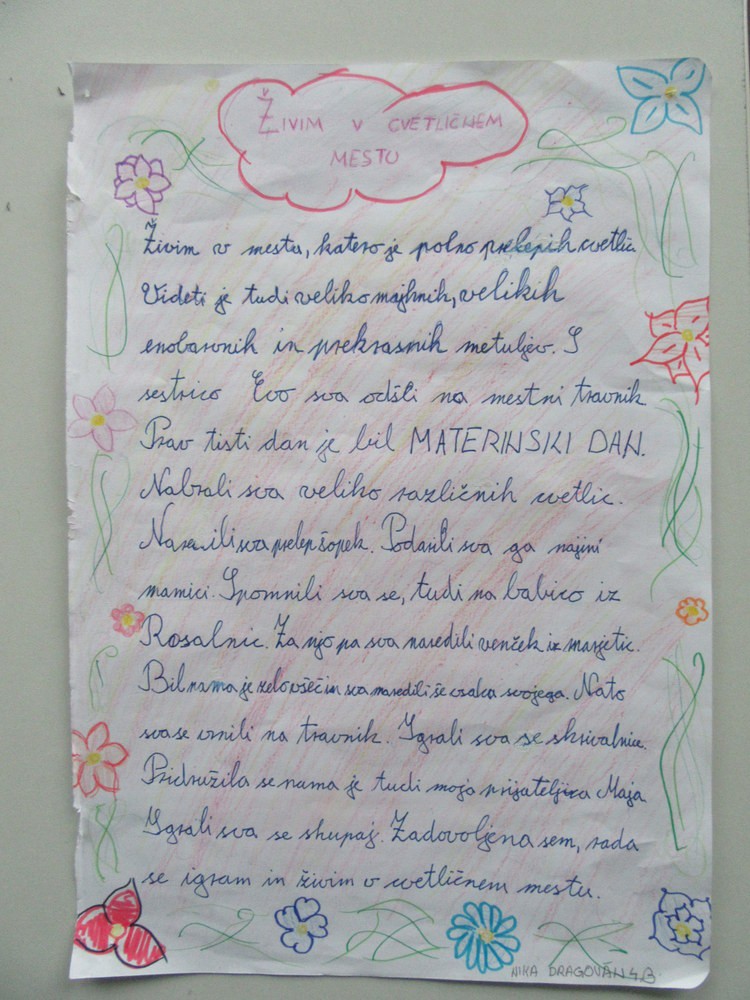 ŽIVIM V CVETLIČNEM
MESTU
Živim v mestu, katero je polno prelepih cvetlic
Videti je tudi veliko majhnih, velikih
enobarvnih in prekrasnih metuljev. S
sestrico Evo sva odšli na mestni travnik
Prav tisti dan je bil MATERINSKI DAN.
Nabrali sva veliko različnih cvetlic.
Naredili sva prelep šopek. Podarili sva ga najini
mamici. Spomnili sva se, tudi na babico iz
Rosalnic. Za njo pa sva naredili venček iz marjetic.
Bil nama je zelo všeč in sva naredili še vsaka svojega. Nato
sva se vrnili na travnik. Igrali sva se skrivalnice.
Pridružila se nama je tudi moja prijateljica Maja
Igrali sva se skupaj. Zadovoljena sem, rada
se igram in živim v cvetličnem mestu.
NIKA DRAGOVAN 4.B